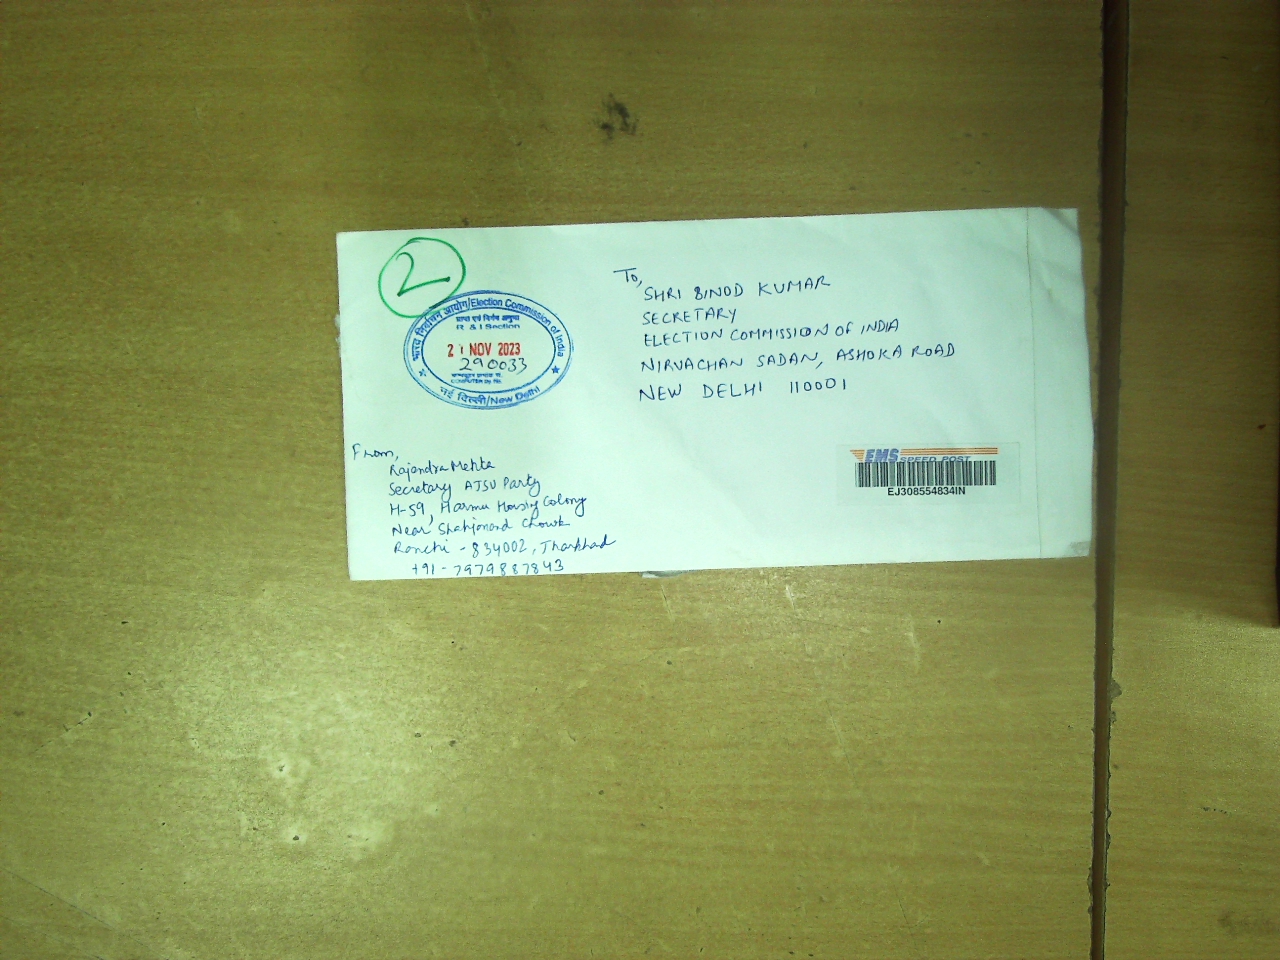 2
भारत निर्वाचन आयोग/Election Commission of India
प्राप्त एवं निर्गम अनुभाग
R & I Section
21 NOV 2023
290033
COMPUTER Dy. No.
नई दिल्ली/New Delhi
To,
SHRI BINOD KUMAR
SECRETARY
ELECTION COMMISSION OF INDIA
NIRVACHAN SADAN, ASHOKA ROAD
NEW DELHI 110001
EMS SPEED POST
EJ308554834IN
From,
Rajendra Mehta
Secretary AJSU Party
H-59, Harmu Housing Colony
Near Shahjanand Chowk
Ranchi - 834002, Jharkhad
+91-7979887843